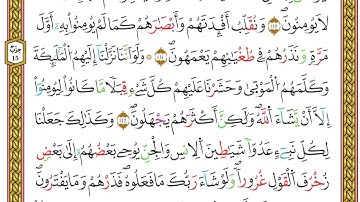 لَا يُؤْمِنُونَ ﴿١٠٩﴾ وَنُقَلِّبُ أَفْـِٔدَتَهُمْ وَأَبْصَٰرَهُمْ كَمَا لَمْ يُؤْمِنُوا۟ بِهِۦٓ أَوَّلَ
مَرَّةٍ وَنَذَرُهُمْ فِى طُغْيَٰنِهِمْ يَعْمَهُونَ ﴿١١٠﴾ وَلَوْ أَنَّنَا نَزَّلْنَآ إِلَيْهِمُ ٱلْمَلَٰٓئِكَةَ
وَكَلَّمَهُمُ ٱلْمَوْتَىٰ وَحَشَرْنَا عَلَيْهِمْ كُلَّ شَىْءٍ قُبُلًا مَّا كَانُوا۟ لِيُؤْمِنُوٓا۟
إِلَّآ أَن يَشَآءَ ٱللَّهُ وَلَٰكِنَّ أَكْثَرَهُمْ يَجْهَلُونَ ﴿١١١﴾ وَكَذَٰلِكَ جَعَلْنَا
لِكُلِّ نَبِىٍّ عَدُوًّا شَيَٰطِينَ ٱلْإِنسِ وَٱلْجِنِّ يُوحِى بَعْضُهُمْ إِلَىٰ بَعْضٍ
زُخْرُفَ ٱلْقَوْلِ غُرُورًا وَلَوْ شَآءَ رَبُّكَ مَا فَعَلُوهُ فَذَرْهُمْ وَمَا يَفْتَرُونَ
حزب
15